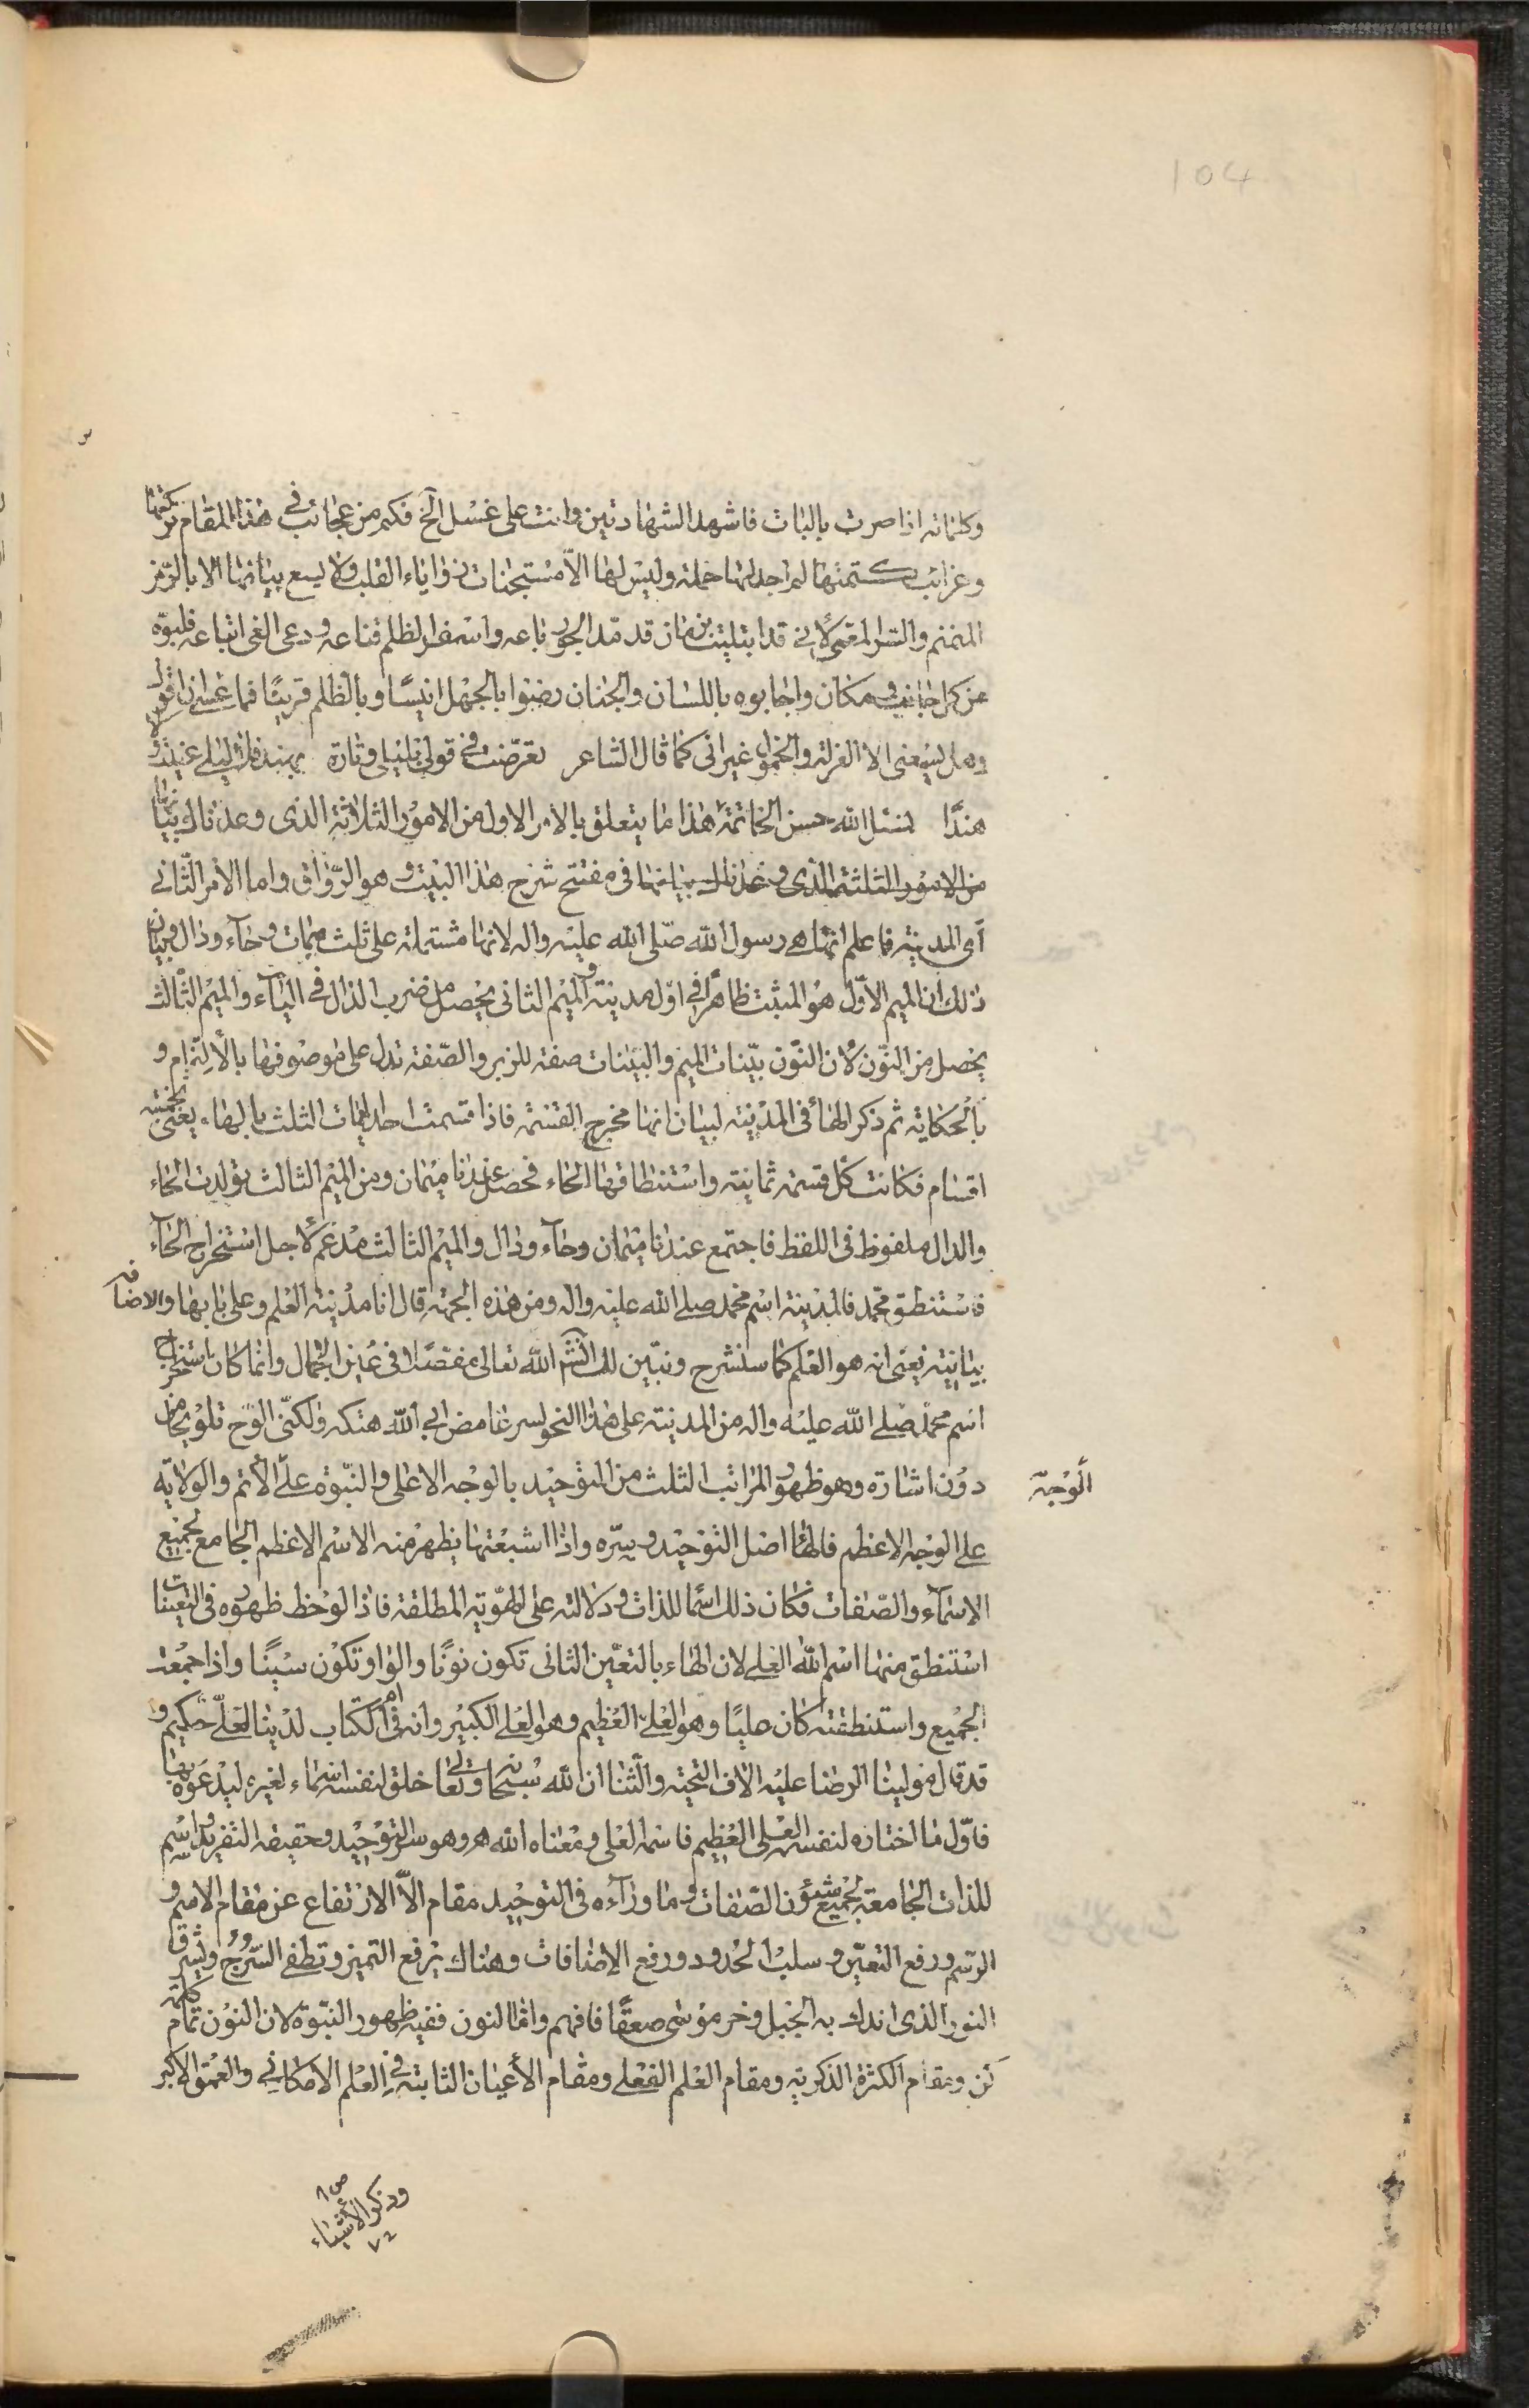 104
وكلماته اذا صرت بالباب فاشهد الشهادتين وانت على غسل الخ فكم من عجائب في هذا المقام تركتها
وغرائب كتمتها لم اجد لها حملة وليس لها الا مستجنات زوايا القلب ولا يسع بيانها الا بالرمز
المنمنم والسر المعمى لاني قد ابتليت بزمان قد مد الجور باعه واسفر الظلم قناعه ودعى الغي اتباعه فلبوه
من كل جانب ومكان واجابوه باللسان والجنان رضوا بالجهل انيسا وبالظلم قرينا فما عسى ان اقول
وهل يسعنى الا العزلة والخمول غير انى كما قال الشاعر تعرضت في قولي بليلى وتارة بهند فلا ليلى عنيت ولا
هندا نسئل الله حسن الخاتمة هذا ما يتعلق بالامر الاول من الامور الثلاثة الذى وعدناك بيانها
من الامور الثلثة الذى وعدناك بيانها في مفتتح شرح هذا البيت وهو الرواق واما الامر الثاني
اى المدينة فاعلم انها هي رسول الله صلى الله عليه واله لانها مشتملة على ثلث ميمات وحاء ودال وبيان
ذلك ان الميم الاول هو المثبت ظاهرا في اول مدينة والميم الثانى يحصل من ضرب الدال في الياء والميم الثالث
يحصل من النون لان النون بينات الميم والبينات صفة للزبر والصفة تدل على موصوفها بالالتزام و
بالحكاية ثم ذكر الهاء في المدينة لبيان انها مخرج القسمة فاذا قسمت احد الميمات الثلث بالهاء يعنى بخمسة
اقسام فكانت كل قسمة ثمانية واستنطاقها الحاء فحصل عندنا ميمان ومن الميم الثالث تولدت الحاء
والدال ملفوظ في اللفظ فاجتمع عندنا ميمان وحاء ودال والميم الثالث مدغم لاجل استخراج الحاء
فاستنطق محمد فالمدينة اسم محمد صلى الله عليه واله ومن هذه الجهة قال انا مدينة العلم وعلي بابها والاضافة
بيانية يعنى انه هو العلم كما سنشرح ونبين لك انشاء الله تعالى مفصلا في عين الاجمال وانما كان باستخراج
اسم محمد صلى الله عليه واله من المدينة على هذا النحو لسر غامض ابى الله هتكه ولكنى الوح تلويحا من
دون اشارة وهو ظهور المراتب الثلث من التوحيد بالوجه الاعلى والنبوة على الاتم والولاية
الوجه
على الوجه الاعظم فالهاء اصل التوحيد وسره واذا اشبعتها يظهر منه الاسم الاعظم الجامع لجميع
الاسماء والصفات فكان ذلك اسما للذات ودلالته على الهوية المطلقة فاذا لوحظ ظهوره في التعينات
استنطق منها اسم الله العلي لان الهاء بالتعين الثانى تكون نونا والواو تكون سينا واذا جمعت
الجميع واستنطقته كان عليا وهو العلي العظيم وهو العلي الكبير وانه في ام الكتاب لدينا لعلي حكيم و
قد قال مولينا الرضا عليه الاف التحية والثنا ان الله سبحانه وتعالى خلق لنفسه اسماء لغيره ليدعوه بها
فاول ما اختاره لنفسه العلى العظيم فاسمه العلى ومعناه الله هو وهو سر التوحيد وحقيقة التفريد واسم
للذات الجامعة لجميع شئون الصفات وما وراءه في التوحيد مقام الا الارتفاع عن مقام الاسم و
الرسم ورفع التعين وسلب الحدود ورفع الاضافات وهناك يرفع التميز وتطفى السرج ويشرق
النور الذى اندك به الجبل وخر موسى صعقا فافهم واما النون ففيه ظهور النبوة لان النون تمام كلمة
كن ومقام الكثرة الذكرية ومقام العلم الفعلي ومقام الاعيان الثابتة في العلم الامكاني والعمق الاكبر
وذكر الاشياء